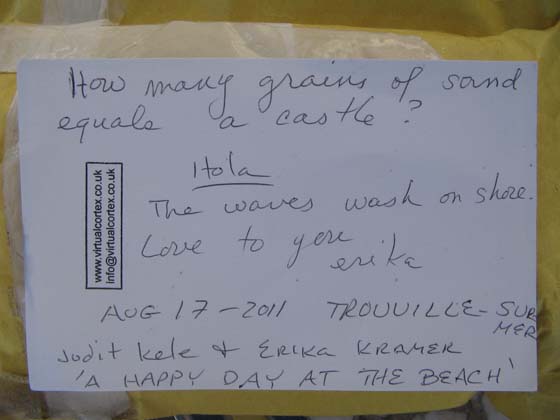 How many grains of sand
equals a castle?
Hola
The waves wash on shore.
Love to you
erika
www.virtualcortex.co.uk
info@virtualcortex.co.uk
AUG 17-2011 TROUVILLE-SUR
MER
Judit Kele & ERIKA KRAMER
'A HAPPY DAY AT THE BEACH'